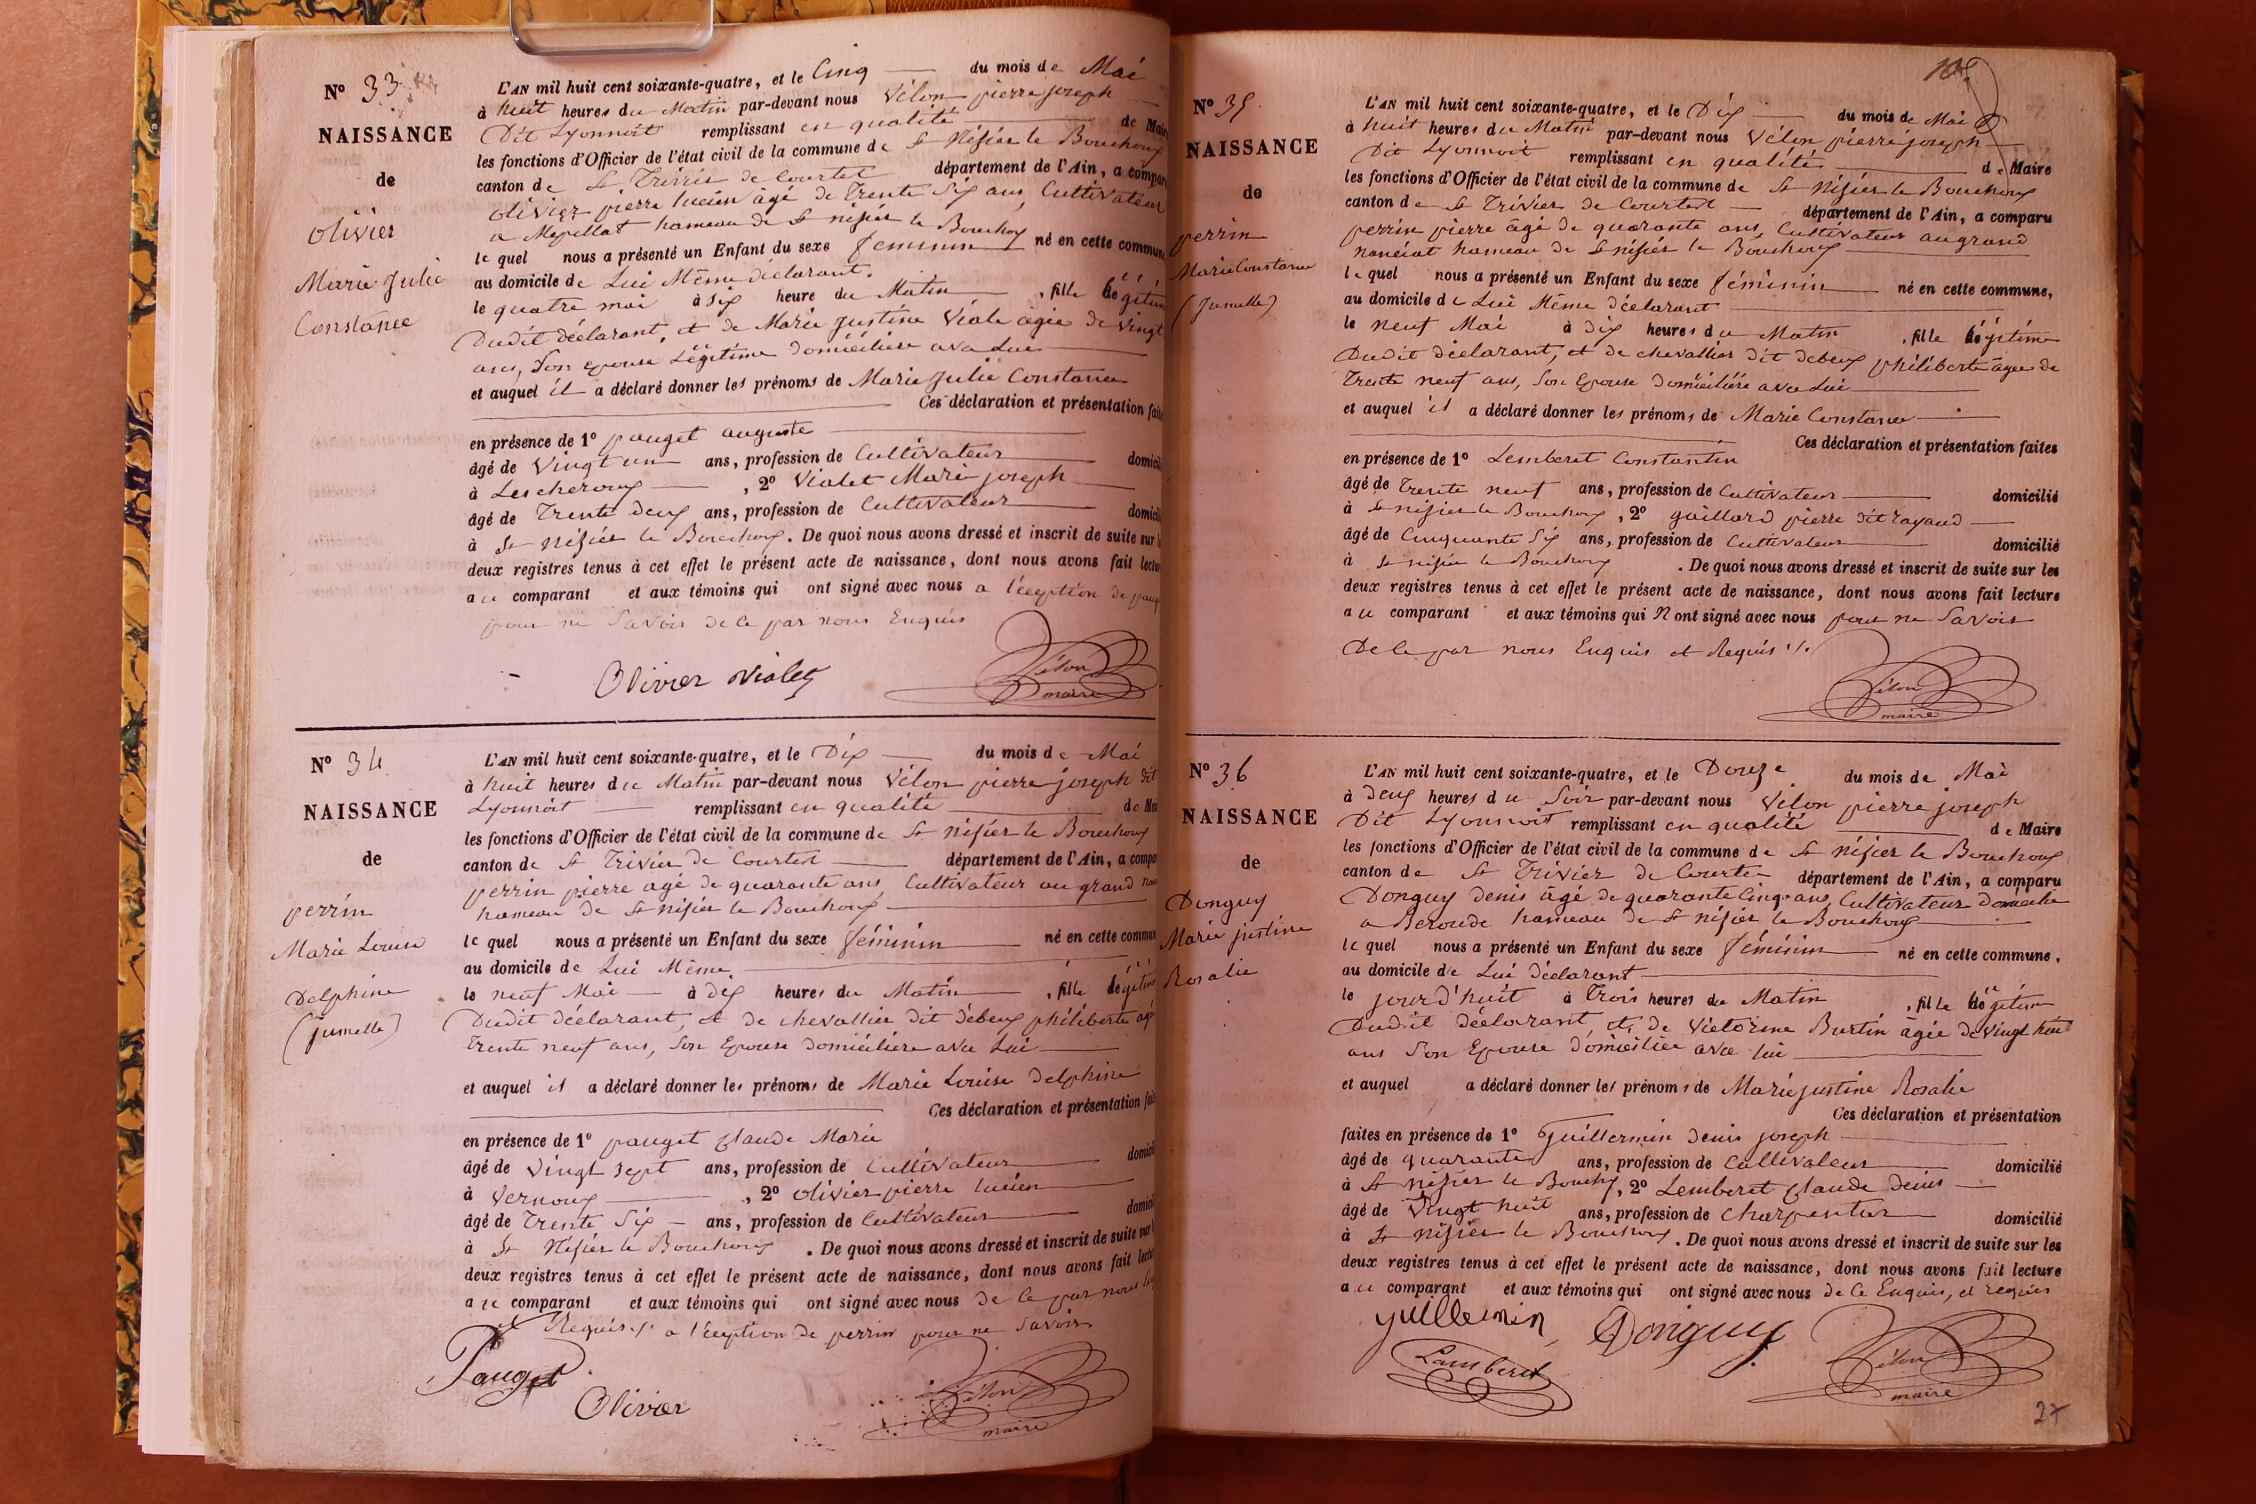 N° 33
NAISSANCE
de
olivier
Marie Julie
Constance
L'AN mil huit cent soixante-quatre, et le Cinq du mois de Mai
à huit heures du Matin par-devant nous Vélon pierre joseph
Dit Lyonnoit remplissant en qualité de Mair
les fonctions d'Officier de l'état civil de la commune de St Nisier le Bouchoux
canton de St Trivier de Courtet département de l'Ain, a compar
olivier pierre lucien âgé de Trente Six ans, Cultivateur
a Mepillat hameau de St nisier le Bouchoux
lequel nous a présenté un Enfant du sexe féminin né en cette commune
au domicile de Lui Même déclarant.
le quatre mai à six heure du Matin , fille légitim
Dudit déclarant, et de Marie Justine Viole agée de Vingt
ans, Son epouse Légitime domiciliere avec Lui
et auquel il a déclaré donner les prénoms de Marie Julie Constance
Ces déclaration et présentation fait
en présence de 1° pauget auguste
âgé de Vingt un ans, profession de Cultivateur domicil
à Lescheroux , 2° Violet Marie joseph
âgé de Trente deux ans, profession de Cultivateur domicil
à St Nisier le Bouchoux. De quoi nous avons dressé et inscrit de suite sur l
deux registres tenus à cet effet le présent acte de naissance, dont nous avons fait lectu
au comparant et aux témoins qui ont signé avec nous a l'éxeption de paug
pour ne Savoir de ce par nous Enquis
Olivier Violet
Vélon
maire
N° 34
NAISSANCE
de
perrin
Marie Louise
Delphine
(jumelle)
L'AN mil huit cent soixante-quatre, et le Dix du mois de Mai
à huit heures du Matin par-devant nous Vélon pierre joseph dit
Lyonnoit remplissant en qualité de Mai
les fonctions d'Officier de l'état civil de la commune de St Nisier le Bouchoux
canton de St Trivier de Courtet département de l'Ain, a compa
perrin pierre agé de quarante ans, Cultivateur au grand
hameau de St nisier le Bouchoux
lequel nous a présenté un Enfant du sexe féminin né en cette commun
au domicile de Lui Même
le neuf Mai à dix heures du Matin , fille légitim
Dudit déclarant, et de chevallier dit debeux philiberte agé
Trente neuf ans, Son Epouse domiciliere avec Lui
et auquel il a déclaré donner les prénoms de Marie Louise Delphine
Ces déclaration et présentation fait
en présence de 1° pauget Claude Marie
âgé de Vingt sept ans, profession de Cultivateur domicil
à Vernoux , 2° olivier pierre lucien
âgé de Trente Six ans, profession de Cultivateur domici
à St Nisier le Bouchoux . De quoi nous avons dressé et inscrit de suite sur
deux registres tenus à cet effet le présent acte de naissance, dont nous avons fait lectu
au comparant et aux témoins qui ont signé avec nous de ce par nous
et Requis a l'éxeption de perrin pour ne Savoir
Pauget
Olivier
Vélon
maire
N° 35
NAISSANCE
de
perrin
Marie Constance
(jumelle)
L'AN mil huit cent soixante-quatre, et le Dix du mois de Mai
à huit heures du Matin par-devant nous Vélon pierre joseph
Dit Lyonnoit remplissant en qualité de Maire
les fonctions d'Officier de l'état civil de la commune de St Nisier le Bouchoux
canton de St Trivier de Courtet département de l'Ain, a comparu
perrin pierre âgé de quarante ans, Cultivateur au grand
hameau de St nisier le Bouchoux
lequel nous a présenté un Enfant du sexe féminin né en cette commune,
au domicile de Lui Même déclarant
le neuf Mai à dix heures du Matin , fille légitime
Dudit déclarant, et de chevallier dit debeux philiberte âgée de
Trente neuf ans, Son Epouse domiciliere avec Lui
et auquel il a déclaré donner les prénoms de Marie Constance
Ces déclaration et présentation faites
en présence de 1° Lemberet Constantin
âgé de Trente neuf ans, profession de Cultivateur domicilié
à St nisier le Bouchoux, 2° guillard pierre dit rayaud
âgé de Cinquante Six ans, profession de Cultivateur domicilié
à St nisier le Bouchoux . De quoi nous avons dressé et inscrit de suite sur les
deux registres tenus à cet effet le présent acte de naissance, dont nous avons fait lecture
au comparant et aux témoins qui N ont signé avec nous pour ne Savoir
De ce par nous Enquis et Requis
Vélon
maire
N° 36
NAISSANCE
de
Donguy
Marie justine
Rosalie
L'AN mil huit cent soixante-quatre, et le Douze du mois de Mai
à deux heures du Soir par-devant nous Vélon pierre joseph
Dit Lyonnoit remplissant en qualité de Maire
les fonctions d'Officier de l'état civil de la commune de St Nisier le Bouchoux
canton de St Trivier de Courte département de l'Ain, a comparu
Donguy denis âgé de quarante Cinq ans, Cultivateur domicilié
a Beroude hameau de St nisier le Bouchoux
lequel nous a présenté un Enfant du sexe féminin né en cette commune,
au domicile de Lui déclarant
le jourd'huit à Trois heures du Matin , fille légitime
Dudit déclarant, et de Victorine Burtin âgée de Vingt huit
ans Son Epouse domiciliée avec lui
et auquel a déclaré donner les prénoms de Marie justine Rosalie
Ces déclaration et présentation
faites en présence de 1° guillermin denis joseph
âgé de quarante ans, profession de Cultivateur domicilié
à St Nisier le Bouchx, 2° Lemberet Claude denis
âgé de Vingt huit ans, profession de charpentier domicilié
à St nisier le Bouchoux. De quoi nous avons dressé et inscrit de suite sur les
deux registres tenus à cet effet le présent acte de naissance, dont nous avons fait lecture
au comparant et aux témoins qui ont signé avec nous de ce Enquis, et requis
guillermin Donguy
Lamberet
Vélon
maire
27